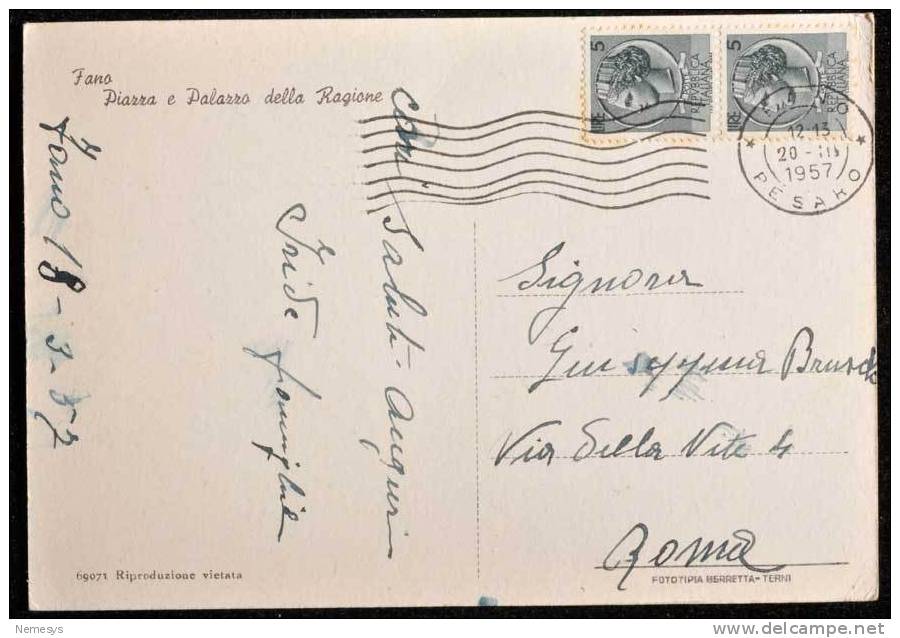 Fano
Piazza e Palazzo della Ragione
Fano 18-3-57
cari saluti - auguri
Iride famiglia
5
LIRE
REPVBBLICA
ITALIANA
5
LIRE
REPVBBLICA
ITALIANA
12-13
20-III
1957
PESARO
Signora
Giuseppina
Via della Vite 4
Roma
69071 Riproduzione vietata
FOTOTIPIA BERRETTA-TERNI
Nemesys
delcampe.net